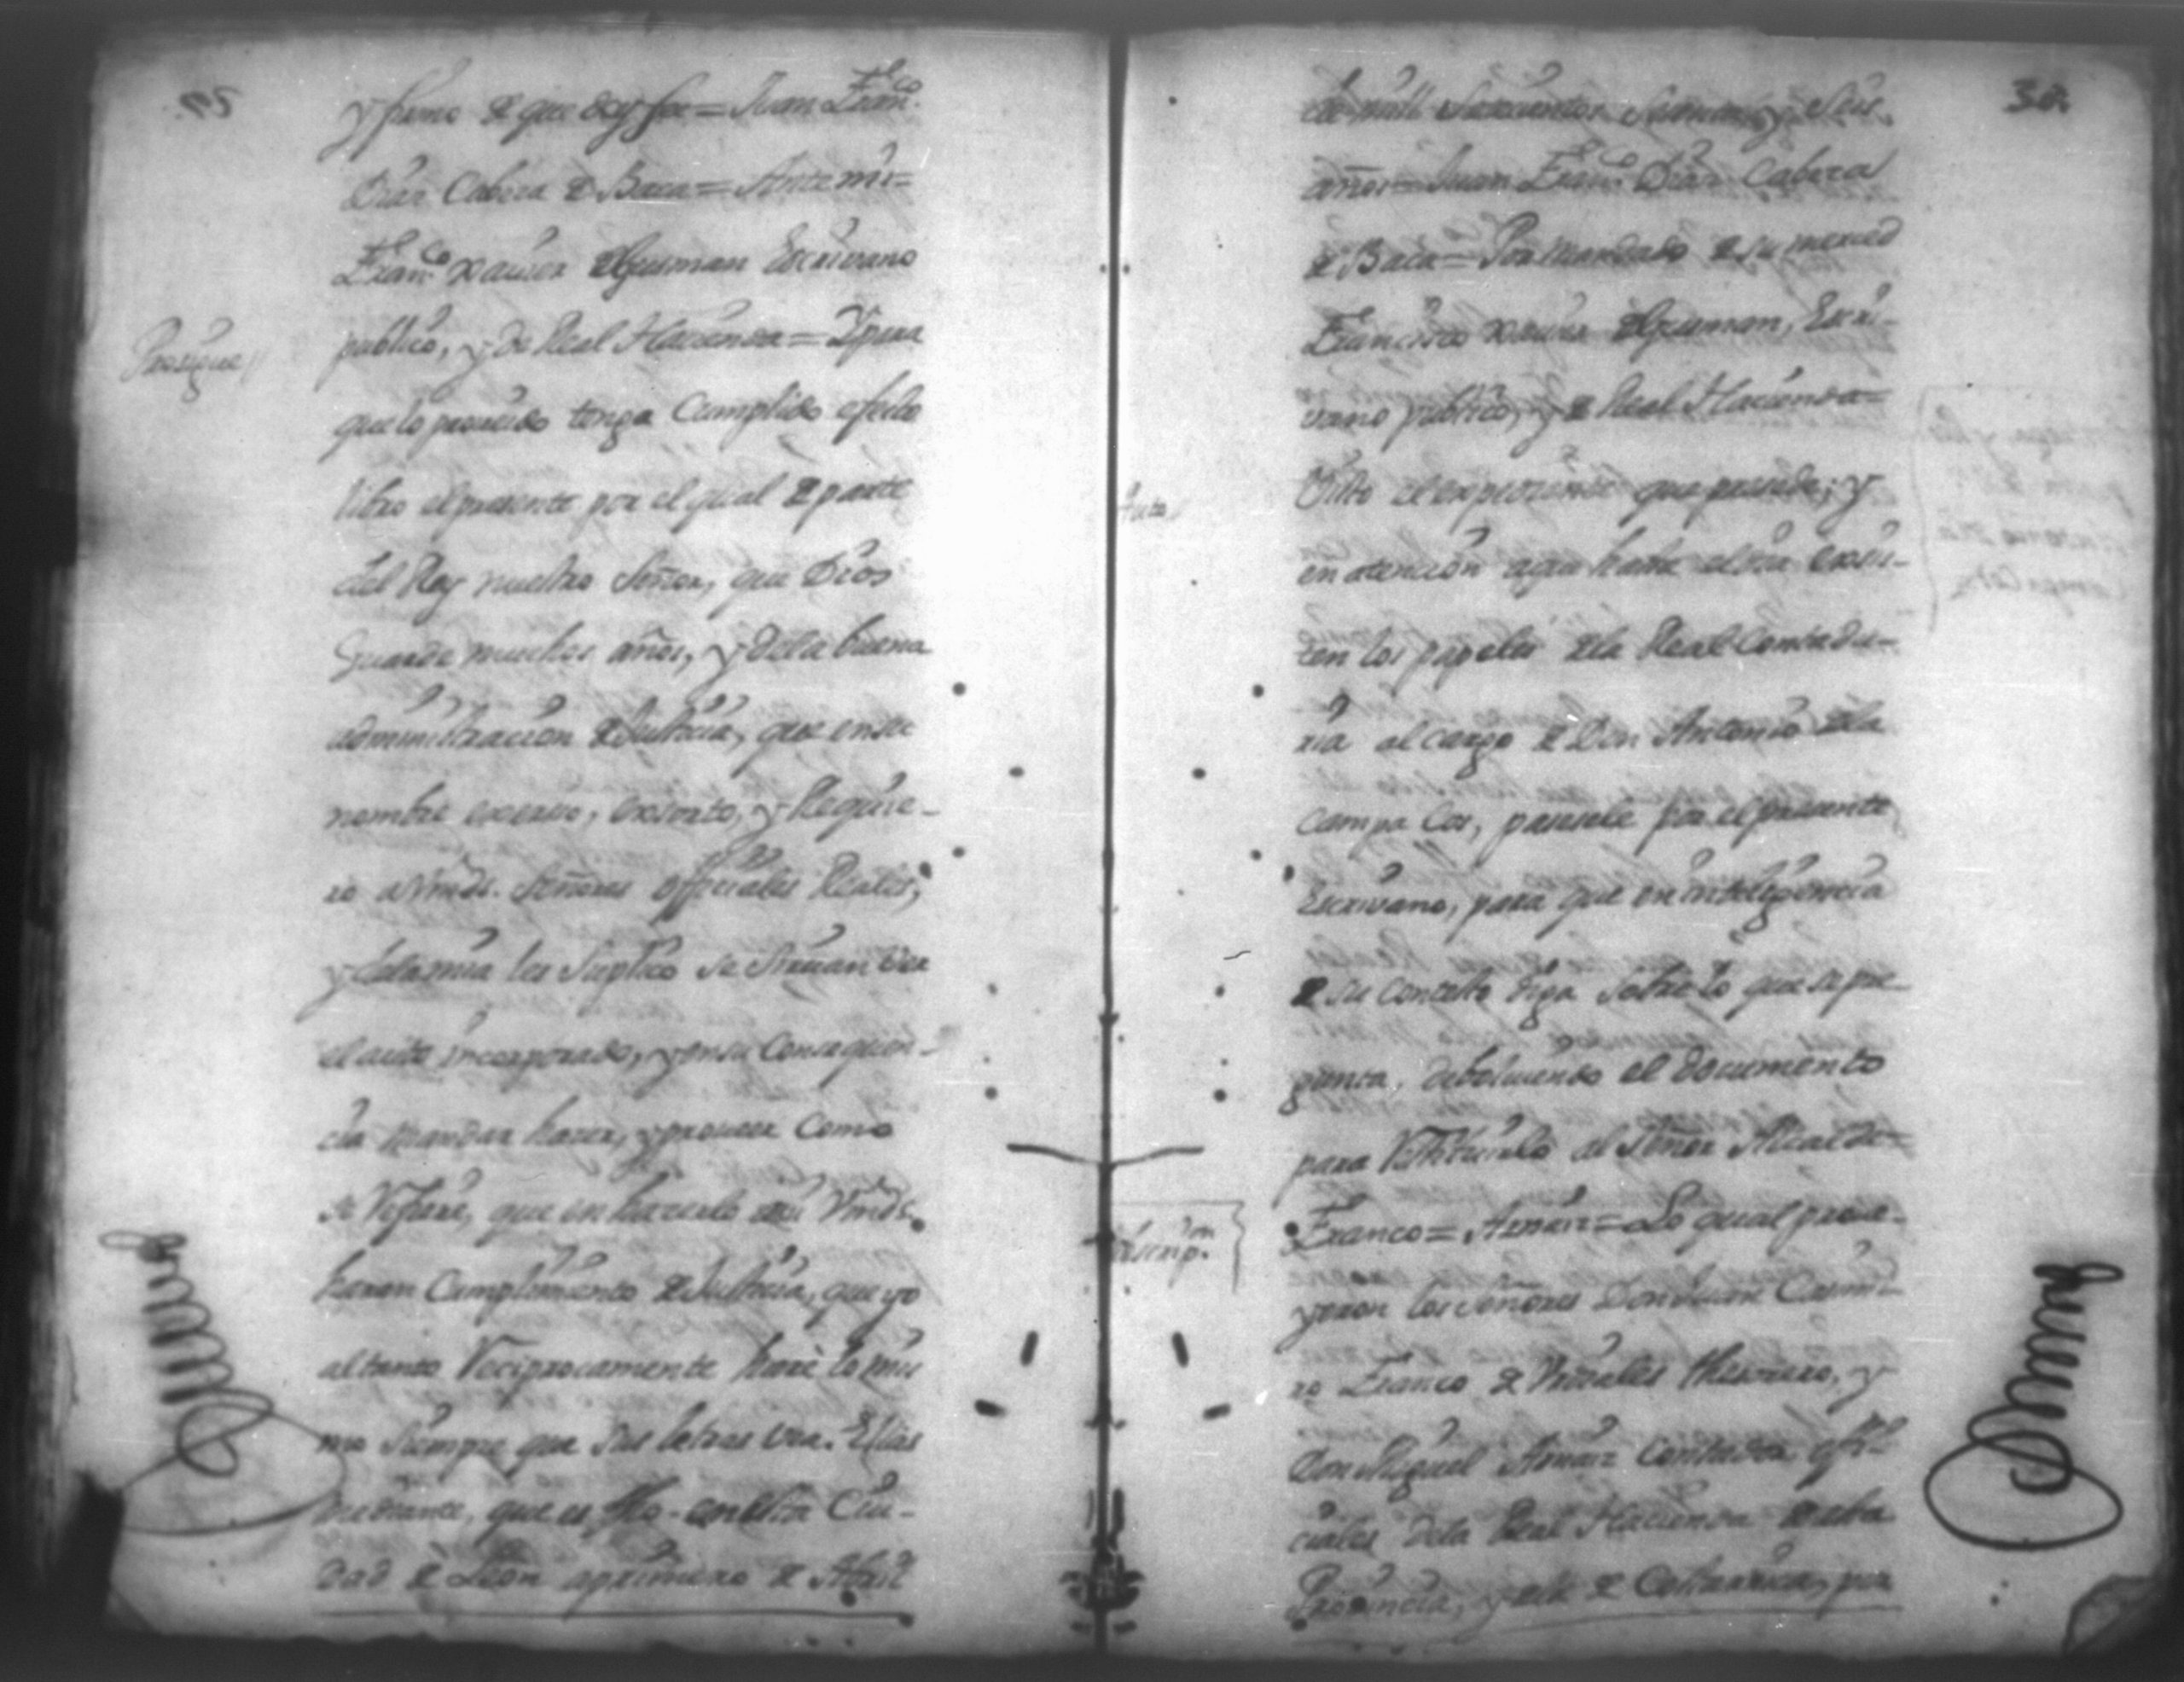 y firmo de que doy fee = Juan Fran.co
Diaz Cabeza de Baca = Antemi =
Fran.co Xavier de Guzman Escrivano
publico, y de Real Hacienda = Y para
Prosigue//
que lo proveido tenga Cumplido efecto
libro el presente por el qual de parte
del Rey nuestro Señor, que Dios
Guarde muchos años, y dela buena
administracion de Justicia, que en su
nombre exerso, exsorto, y Requie-
ro a Vmds. Señores officiales Reales,
y dela mia les Suplico se Sirvan ver
el auto incorporado, y en su Consequen-
cia mandar hazer, y proveer Como
se Vefiere, que en hazerlo assi Vmds.
haran Cumplimiento de Justicia, que yo
al tanto Veciprocamente harè lo mis
mo Siempre que Sus letras vea. Ellas
mediante, que es fho. en esta Ciu-
dad de Leon a primero de Abril
30.
de mill Setecientos Sesenta, y Seis
años = Juan Fran.co Diaz Cabeza
de Baca = Por mandado de su merced
Francisco Xavier de Guzman, Escri-
vano publico, y de Real Hacienda =
Auto/
Visto el expediente que precede; y
en atencion aque hasta el dia exsis-
ten los papeles dela Real Contadu-
ria al cargo de Don Antonio dela
Campa Cos, pasesele por el presente
Escrivano, para que en inteligencia
de su contesto diga Sobre lo que se pre-
gunta, debolviendo el documento
para Vestituirlo al señor Alcalde =
Subscrip.on
Franco = Arnaiz = Lo qual prove-
yeron los Señores Don Juan Casimi-
ro Franco de Vidales thesorero, y
Don Miguel Arnaiz Contador offi-
ciales dela Real Hacienda de esta
Provincia, y de la de Costarrica, por